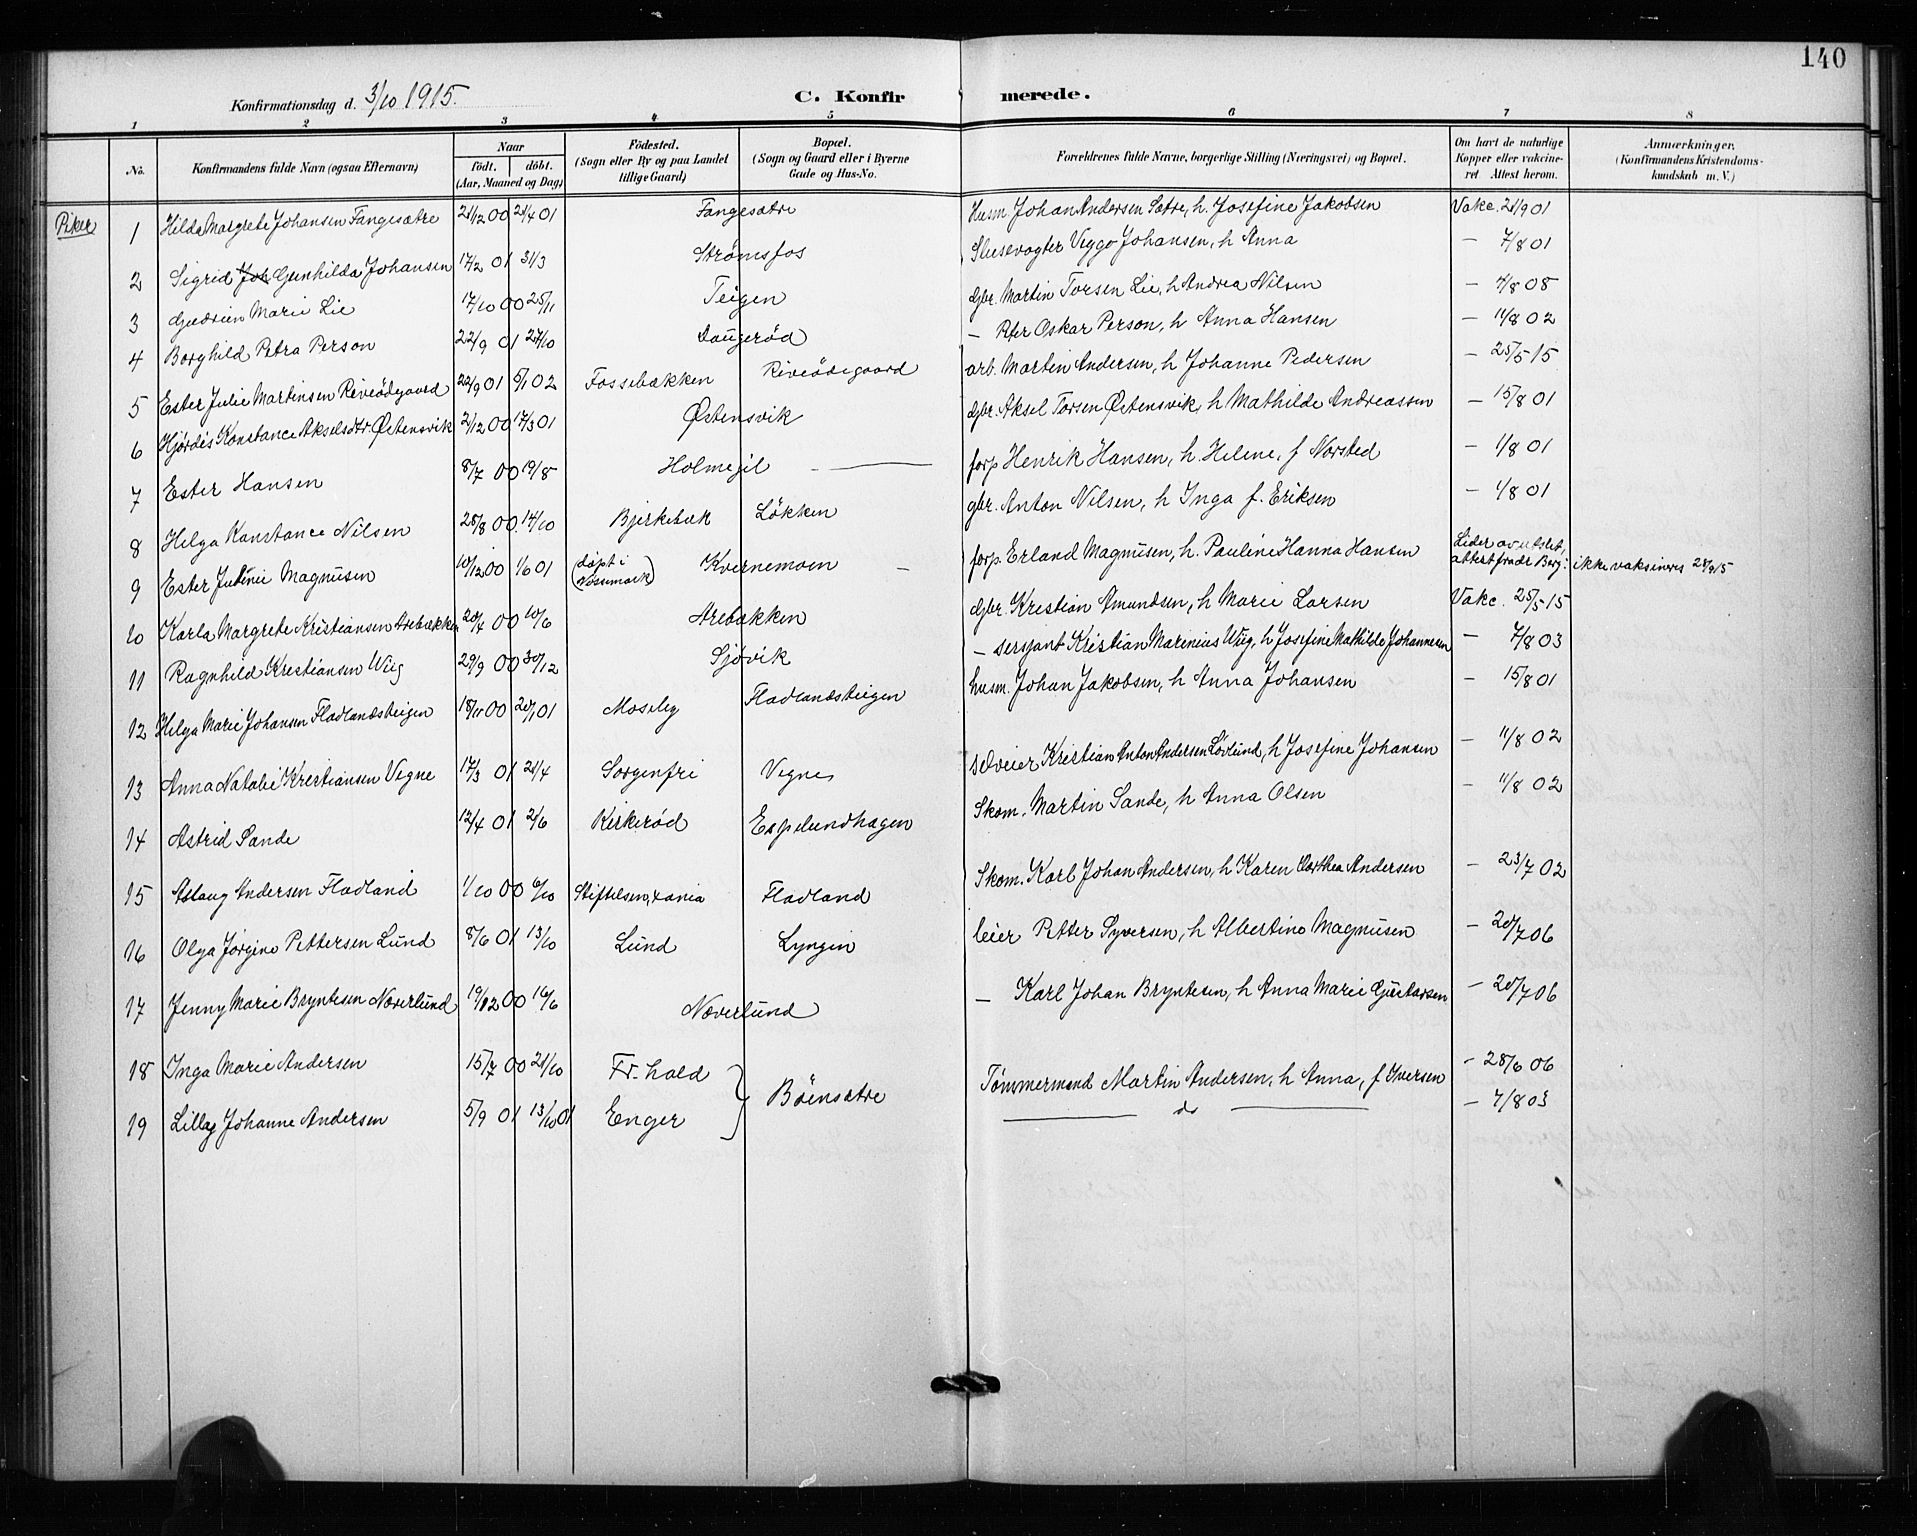 140
Konfirmationsdag d. 3/10 1915. C. Konfir merede.
1 2 3 4 5 6 7 8
No. Konfirmandens fulde Navn (ogsaa Efternavn) Naar født. døbt. (Aar, Maaned og Dag) Fødested. (Sogn eller By og paa Landet tillige Gaard) Bopæl. (Sogn og Gaard eller i Byerne Gade og Hus-No. Forældrenes fulde Navne, borgerlige Stilling (Næringsvei) og Bopæl. Om havt de naturlige Kopper eller vakcineret Attest herom. Anmærkninger. (Konfirmandens Kristendomskundskab m. V.)
Piker
1 Hilda Margrete Johansen Fangesætre 21/12 00 21/4 01 Fangesætre Husm. Johan Andersen Sætre, h. Josefine Jakobsen Vakc. 21/9 01
2 Sigrid Joh Gunhilda Johansen 17/2 01 31/3 Strømsfos Slusevogter Viggo Johansen, h Anna — 7/8 01
3 Gudrun Marie Lie 17/10 00 25/11 Teigen Gbr. Martin Torsen Lie, h Andrea Nilsen — 4/8 08
4 Borghild Petra Person 22/9 01 27/10 Daugerød — Per Oskar Person, h Anna Hansen — 11/8 02
5 Ester Julie Martinsen Riveødegaard 22/9 01 6/1 02 Fossebækken Riveødegaard arb. Martin Andersen, h Johanne Pedersen — 25/5 15
6 Hjørdis Konstance Akselsdtr Østensvik 2/12 00 17/3 01 Østensvik Gbr. Aksel Torsen Østensvik, h Mathilde Andreassen — 15/8 01
7 Ester Hansen 8/7 00 19/8 Holmegil — forp Henrik Hansen, h. Helene, f Norsted — 1/8 01
8 Helga Konstance Nilsen 28/8 00. 14/10 Bjerkebæk Løkken gbr. Anton Nilsen, h Inga f. Eriksen — 1/8 01
9 Ester Juline Magnusen 10/12 00 1/6 01 (døpt i Nössemark) Kvernemoen — forp. Erland Magnusen, h. Pauline Hanna Hansen Lider av utslet, attest fra dr Berg: ikke vaksineres 28/9 15
10 Karla Margrete Kristiansen Arebækken 20/4 00 10/6 Arebækken Gbr. Kristian Amundsen, h Marie Larsen Vakc. 25/5 15
11 Ragnhild Kristiansen Wiig 29/9 00 30/12 Sjøvik — sersjant Kristian Marenius Wiig, h Josefine Mathilde Johannesen — 7/8 03
12 Helga Marie Johansen Fladlandsteigen 18/11 00 20/1 01 Moseby Fladlandsteigen husm. Johan Jakobsen, h Anna Johansen — 15/8 01
13 Anna Natalie Kristiansen Vegne 17/3 01 21/4 Sorgenfri Vegne selveier Kristian Anton Andersen Løvlund, h Josefine Johansen — 11/8 02
14 Astrid Sande 12/4 01 2/6 Kirkerød Espelundhagen Skom. Martin Sande, h Anna Olsen — 11/8 02
15 Aslaug Andersen Fladland 1/10 00 6/10 Stiftelsen, xania Fladland Skom. Karl Johan Andersen, h Karen Dorthea Andersen — 23/7 02
16 Olga Jørgine Pettersen Lund 8/6 01 13/10 Lund Lyngin leier Petter Syversen, h Albertine Magnusen — 20/7 06
17 Jenny Marie Bryntesen Næverlund 19/02 00 16/6 Næverlund — Karl Johan Bryntesen, h Anna Marie Gustavsen — 20/7 06
18 Inga Marie Andersen 15/7 00 21/10 Fr. hald Bøensætre Tømmermand Martin Andersen, h Anna, f Iversen — 28/6 06
19 Lilly Johanne Andersen 5/9 01 13/10 01 Enger do — 7/8 03